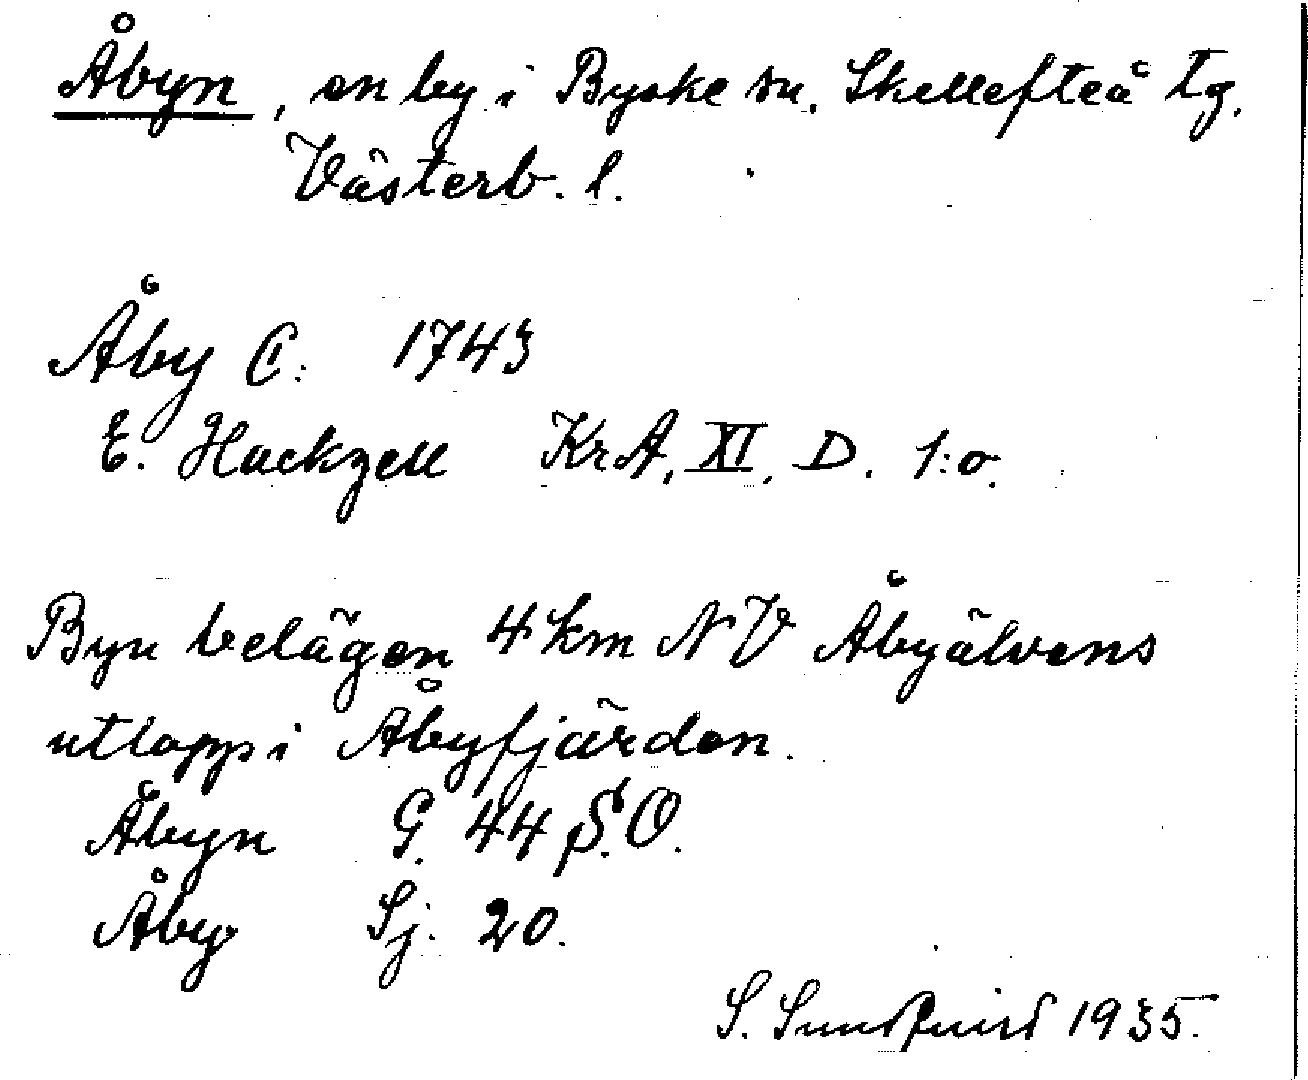 Åbyn, en by i Byske sn. Skellefteå tg.
Västerb. l.
Åby C: 1743
E. Hackzell KrA, XI, D. 1:o.
Byn belägen 4 km NV Åbyälvens
utlopp i Åbyfjärden.
Åbyn G. 44 S.O.
Åby Sj. 20.
S. Sundquist 1935.